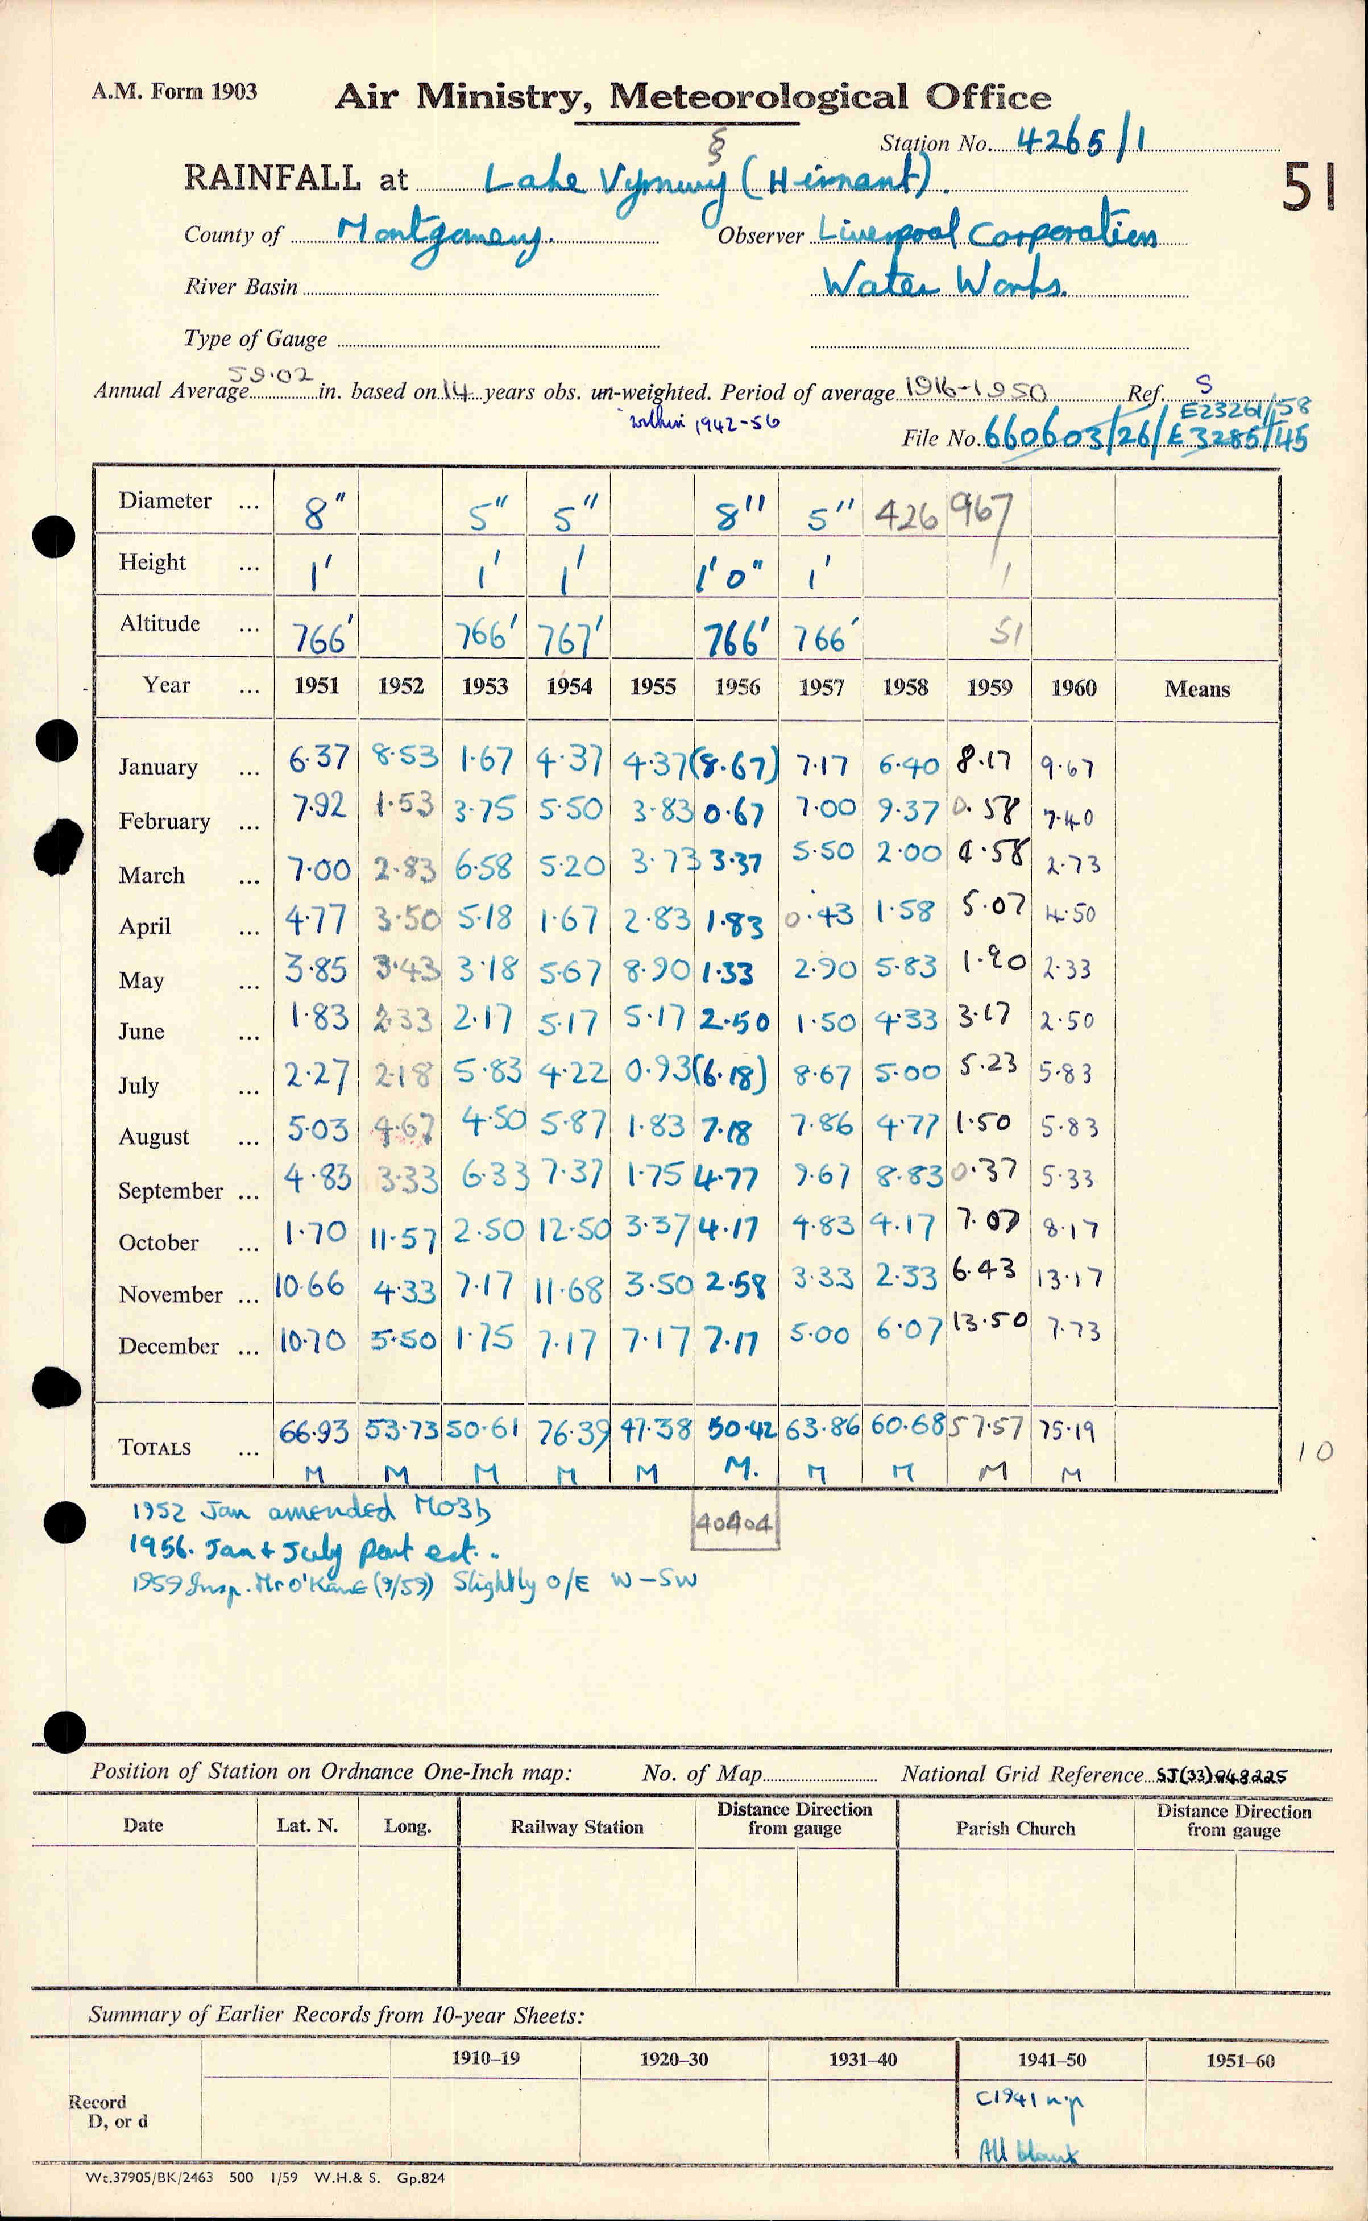 A.M. Form 1903
Air Ministry, Meteorological Office
§
Station No. 4265/1
RAINFALL at Lake Vyrnwy (Hirnant).
51
County of Montgomery. Observer Liverpool Corporation
River Basin Water Works.
Type of Gauge
Annual Average 59.02 in. based on 14 years obs. un-weighted. Period of average 1916-1950 Ref. S
within 1942-56
E23261/58
File No. 660603/26/E3285/45
Diameter ... 8" 5" 5" 8" 5" 426 967
Height ... 1' 1' 1' 1'0" 1' 1
Altitude ... 766' 766' 767' 766' 766' 51
Year ... 1951 1952 1953 1954 1955 1956 1957 1958 1959 1960 Means
January ... 6.37 8.53 1.67 4.37 4.37 (8.67) 7.17 6.40 8.17 9.67
February ... 7.92 1.53 3.75 5.50 3.83 0.67 7.00 9.37 0.58 7.40
March ... 7.00 2.83 6.58 5.20 3.73 3.37 5.50 2.00 4.58 2.73
April ... 4.77 3.50 5.18 1.67 2.83 1.83 0.43 1.58 5.07 4.50
May ... 3.85 3.43 3.18 5.67 8.90 1.33 2.90 5.83 1.90 2.33
June ... 1.83 2.33 2.17 5.17 5.17 2.50 1.50 4.33 3.17 2.50
July ... 2.27 2.18 5.83 4.22 0.93 (6.18) 8.67 5.00 5.23 5.83
August ... 5.03 4.67 4.50 5.87 1.83 7.18 7.86 4.77 1.50 5.83
September ... 4.83 3.33 6.33 7.37 1.75 4.77 9.67 8.83 0.37 5.33
October ... 1.70 11.57 2.50 12.50 3.37 4.17 4.83 4.17 7.07 8.17
November ... 10.66 4.33 7.17 11.68 3.50 2.58 3.33 2.33 6.43 13.17
December ... 10.70 5.50 1.75 7.17 7.17 7.17 5.00 6.07 13.50 7.73
TOTALS ... 66.93 53.73 50.61 76.39 47.38 50.42 63.86 60.68 57.57 75.19
M M M M M M. M M M M
10
1952 Jan amended MO3b
40404
1956. Jan + July part est.
1959 Insp. Mr O'Kane (9/59) Slightly O/E W-SW
Position of Station on Ordnance One-Inch map: No. of Map National Grid Reference SJ(33)048225
Date Lat. N. Long. Railway Station Distance Direction from gauge Parish Church Distance Direction from gauge
Summary of Earlier Records from 10-year Sheets:
1910–19 1920–30 1931–40 1941–50 1951–60
Record
D, or d
C1941 n.p
All blank
Wt.37905/BK/2463 500 1/59 W.H.& S. Gp.824